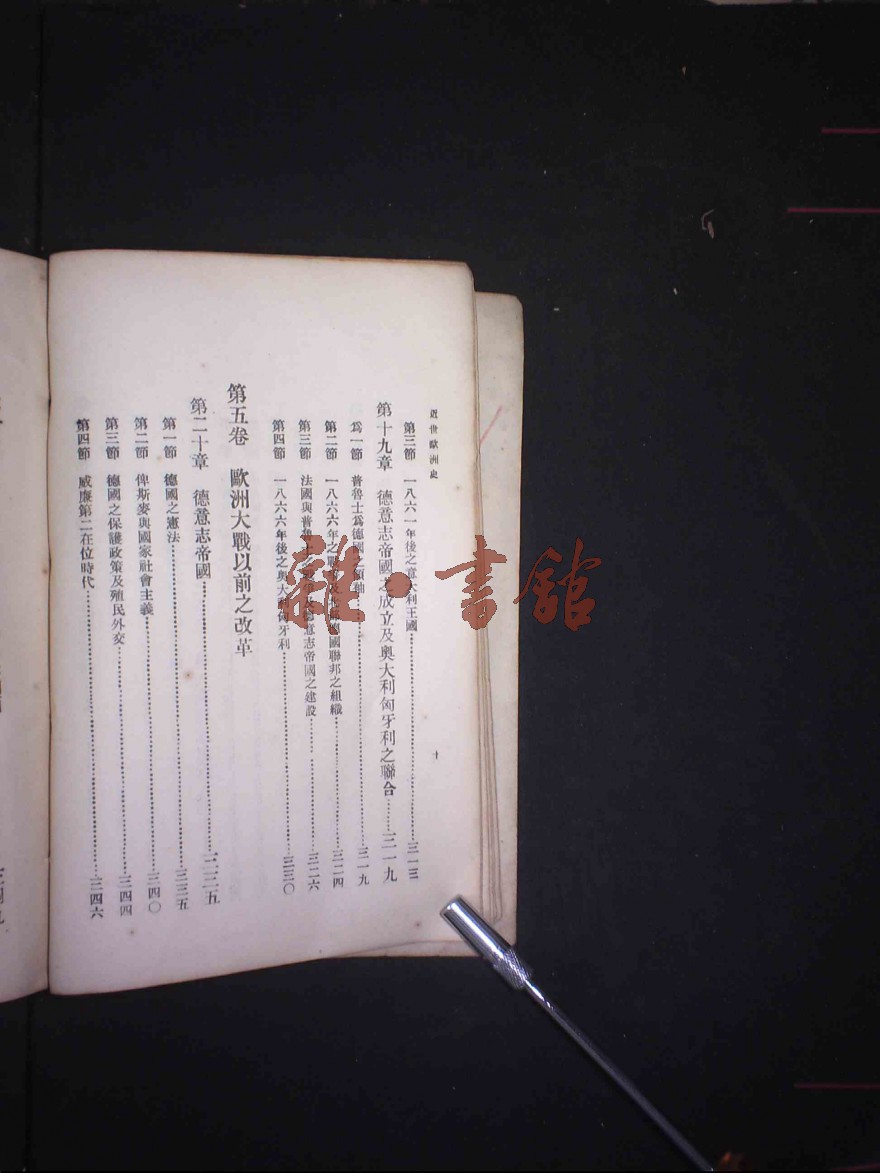 近世歐洲史
十
第三節 一八六一年後之意大利王國 三一三
第十九章 德意志帝國之成立及奧大利匈牙利之聯合 三一九
爲一節 普魯士爲德國之領袖 三一九
第二節 一八六六年之戰 國聯邦之組織 三二四
第三節 法國與普魯士 意志帝國之建設 三二六
第四節 一八六六年後之奧大利匈牙利 三三〇
第五卷 歐洲大戰以前之改革
第二十章 德意志帝國 三三五
第一節 德國之憲法 三三五
第二節 俾斯麥與國家社會主義 三四〇
第三節 德國之保護政策及殖民外交 三四四
第四節 威廉第二在位時代 三四六
雜·書館